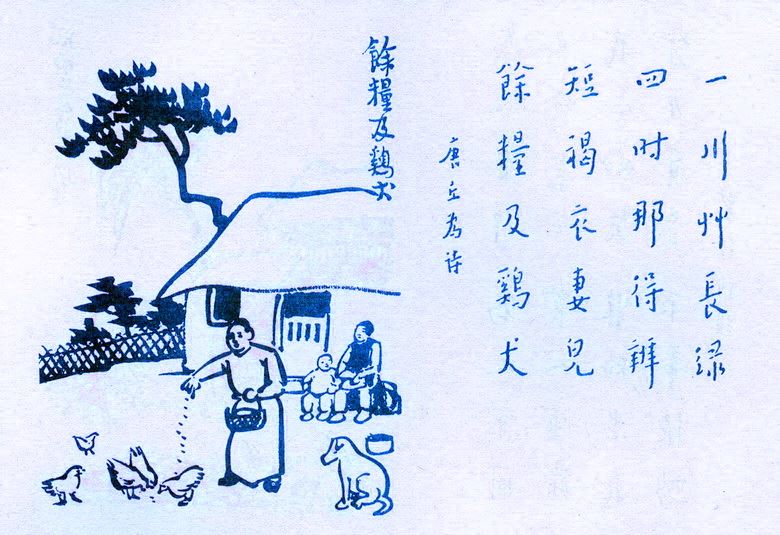 一川艸長绿
四时那得辨
短褐衣妻兒
餘糧及鷄犬
唐丘为诗
餘糧及鷄犬